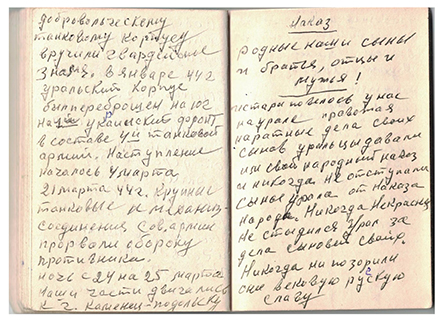 добровольческому
танковому корпусу
вручили гвардейское
Знамя. В январе 44 г
уральский корпус
был переброшен на юг
на 1ый украинский фронт
в составе 4й танковой
армии. Наступление
началось 4 марта
21 марта 44г. Крупные
танковые и механиз-
соединения Сов. армии
прорвали оборону
противника.
ночь с 24 на 25 марта
Наши части двигались
к г. Каменец-подольску
Наказ
родные наши сыны
и братья, отцы и
мужья!
Истари повелось у нас
на урале провожая
на ратные дела своих
сынов уральцы давали
им свой народный наказ
и никогда не отступали
сыны урала от наказа
народа. Никогда Не красне
Не стыдился Урал за
дела сыновей своих.
Никогда ни позорили
они вековую рускую
славу